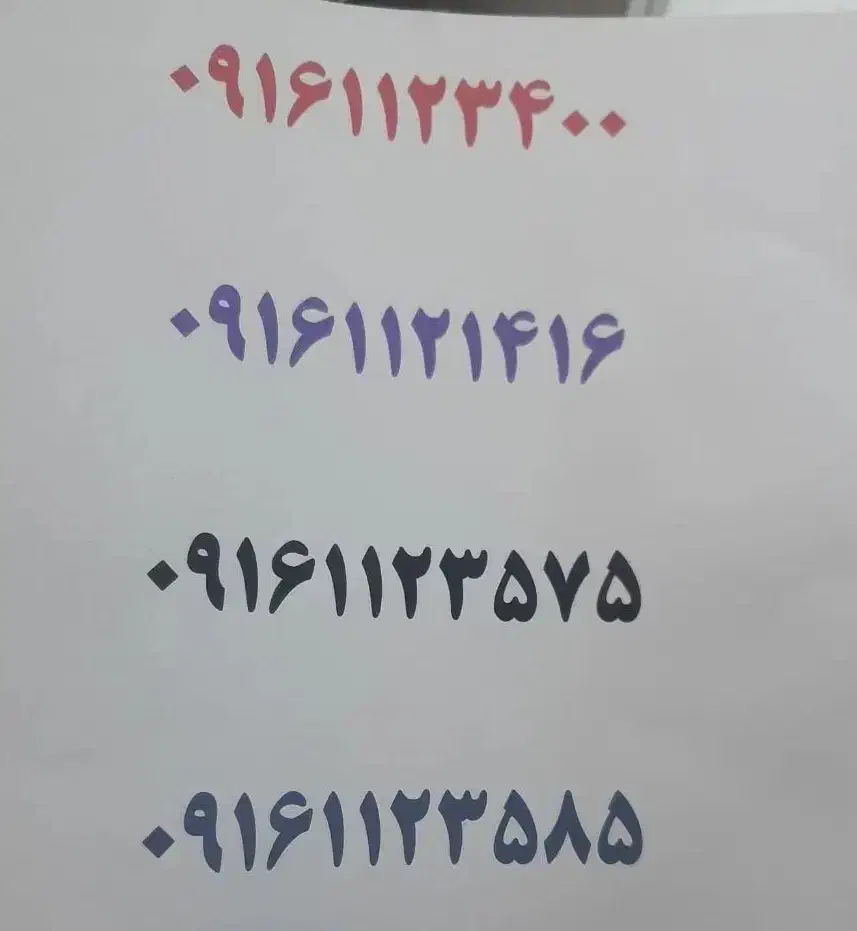 ۰۹۱۶۱۱۲۳۴۰۰
۰۹۱۶۱۱۲۱۴۱۶
۰۹۱۶۱۱۲۳۵۷۵
۰۹۱۶۱۱۲۳۵۸۵